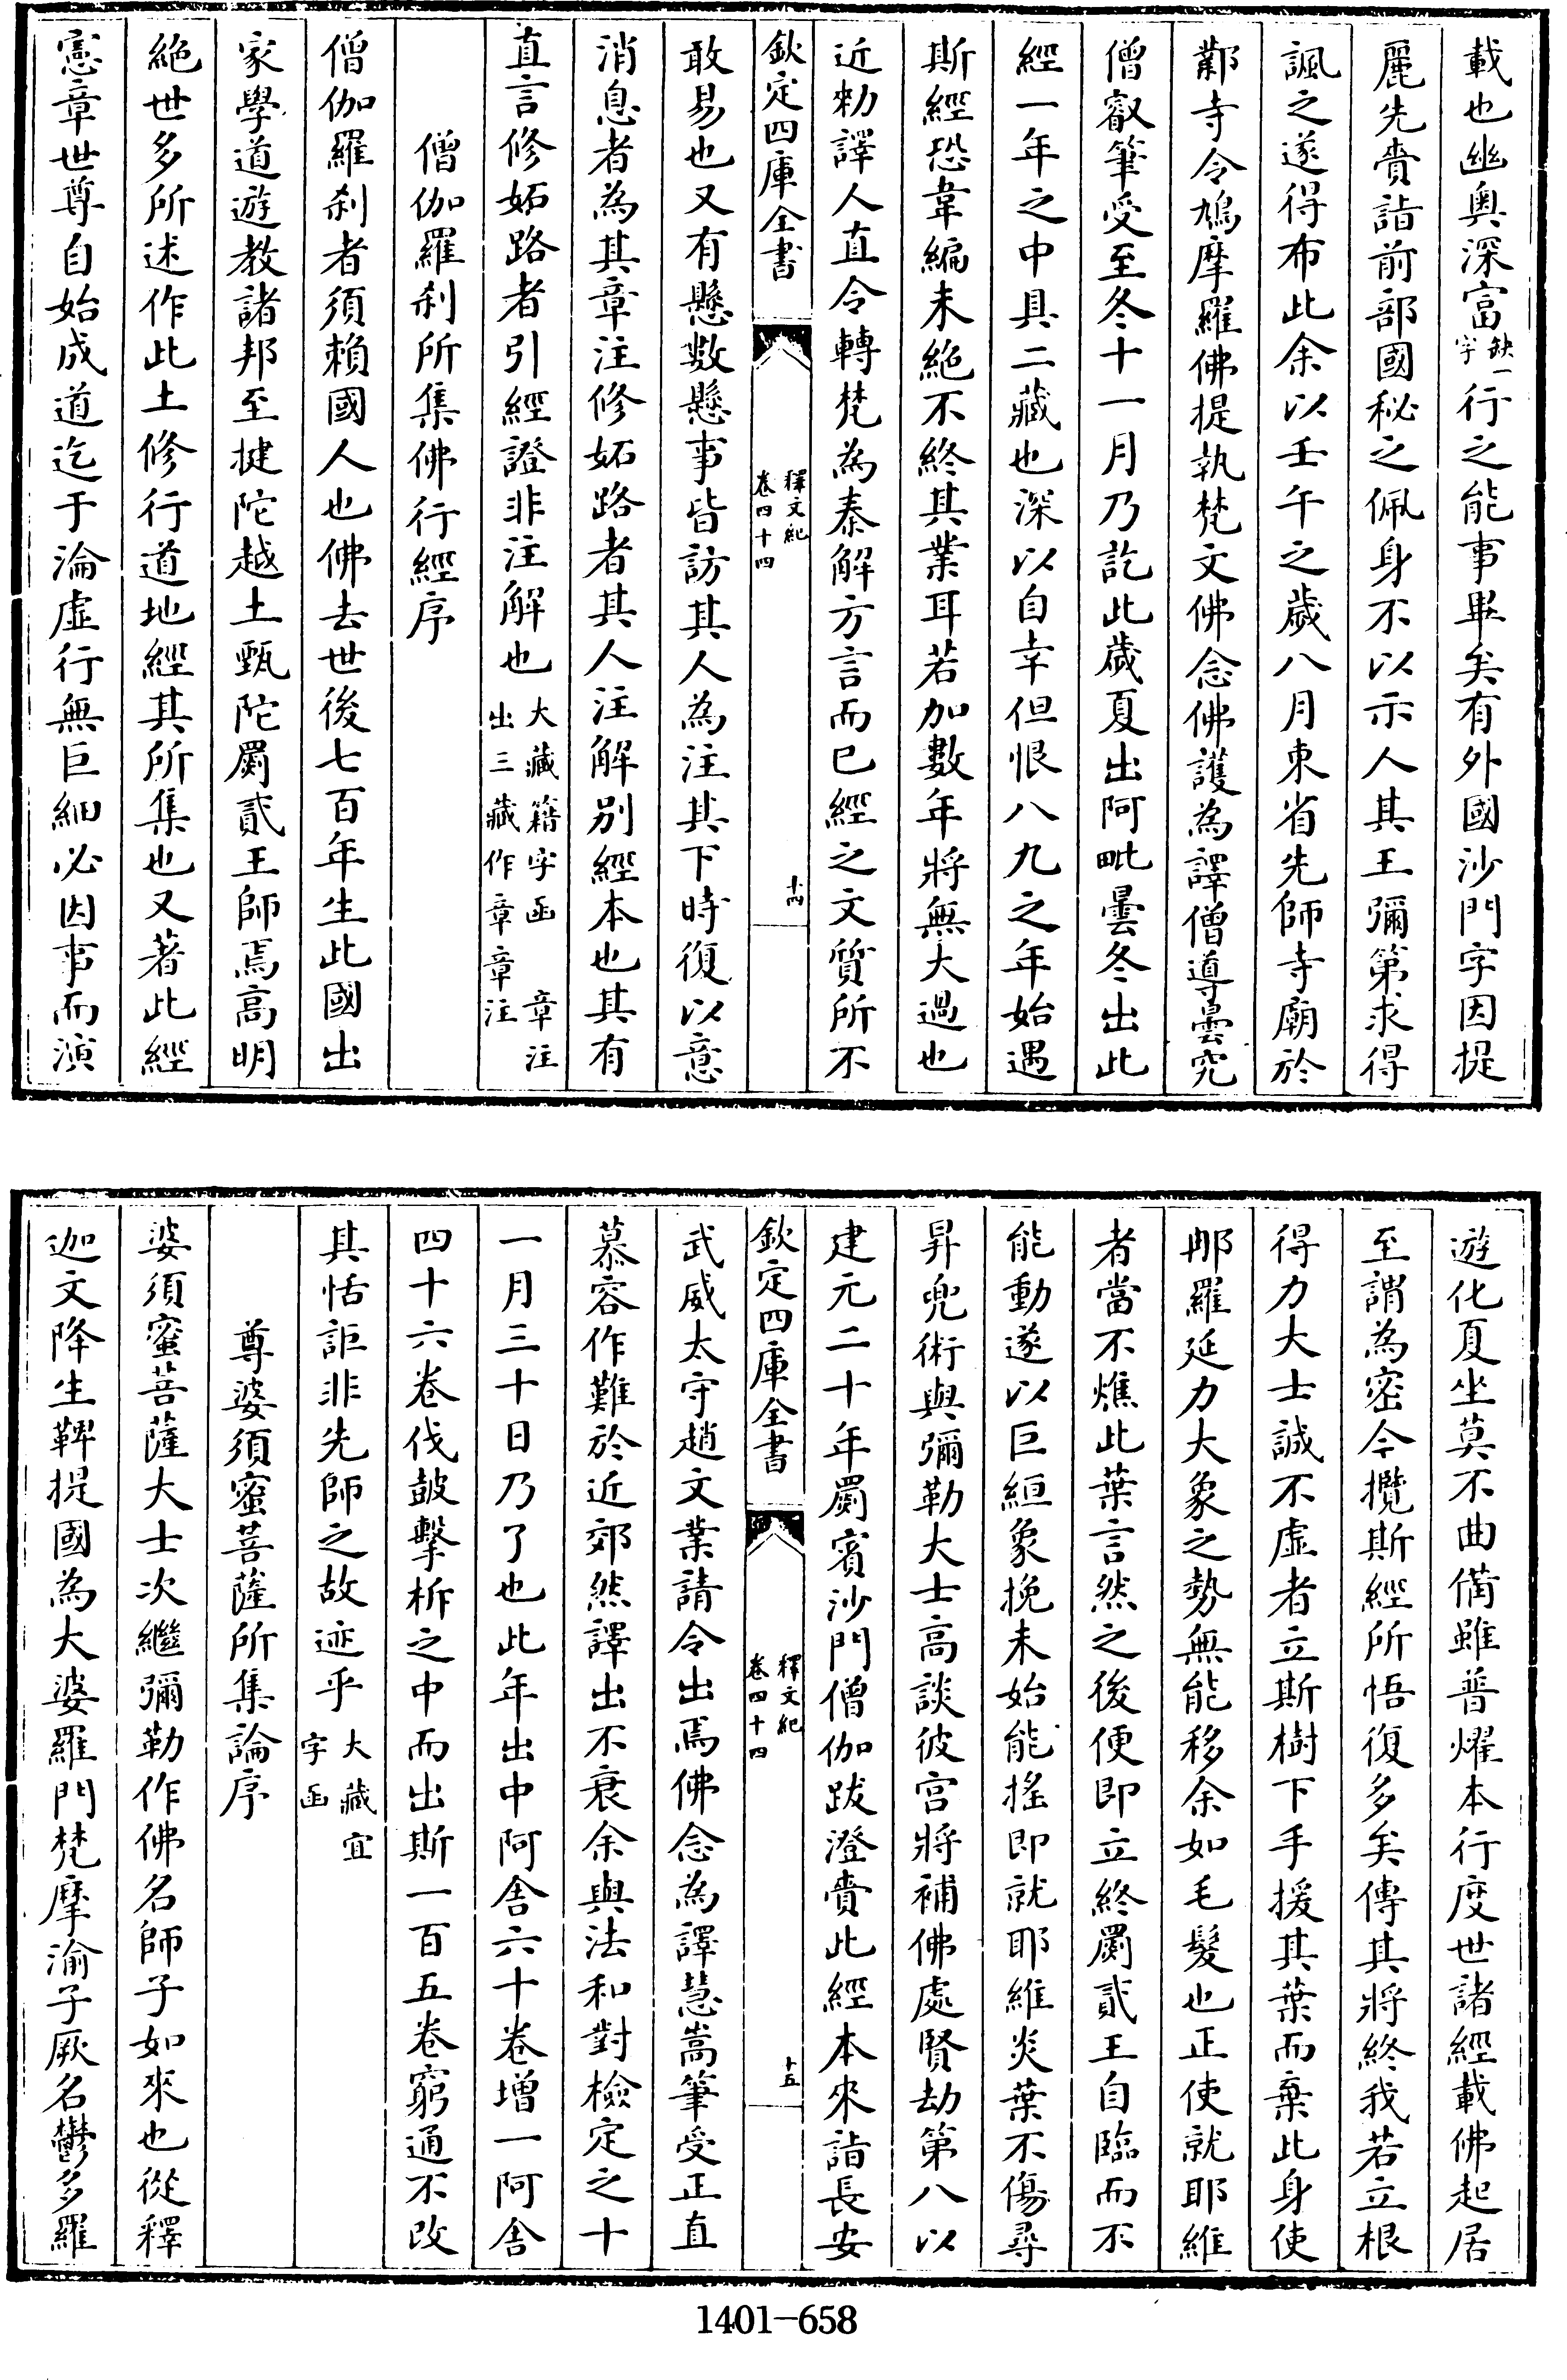 載也幽奥深富缺一字行之能事畢矣有外國沙門字因提
麗先賫詣前部國秘之佩身不以示人其王彌第求得
諷之遂得布此余以壬午之歲八月東省先師寺廟於
鄴寺令鳩摩羅佛提執梵文佛念佛護為譯僧導曇究
僧叡筆受至冬十一月乃訖此歲夏出阿毗曇冬出此
經一年之中具二藏也深以自幸但恨八九之年始遇
斯經恐韋編未絶不終其業耳若加數年將無大過也
近勑譯人直令轉梵為秦解方言而已經之文質所不
欽定四庫全書
釋文紀
卷四十四
十四
敢易也又有懸數懸事皆訪其人為注其下時復以意
消息者為其章注修妬路者其人注解别經本也其有
直言修妬路者引經證非注解也大藏籍字函 章注出三藏作章章注
僧伽羅刹所集佛行經序
僧伽羅刹者須賴國人也佛去世後七百年生此國出
家學道遊教諸邦至揵陀越土甄陀罽貳王師焉高明
絶世多所述作此土修行道地經其所集也又著此經
憲章世尊自始成道迄于淪虚行無巨細必因事而演
遊化夏坐莫不曲備雖普耀本行度世諸經載佛起居
至謂為密今攬斯經所悟復多矣傳其將終我若立根
得力大士誠不虚者立斯樹下手援其葉而棄此身使
那羅延力大象之勢無能移余如毛髮也正使就耶維
者當不燋此葉言然之後便即立終罽貳王自臨而不
能動遂以巨絙象挽未始能搖即就耶維炎葉不傷尋
昇兜術與彌勒大士高談彼宫將補佛處賢劫第八以
建元二十年罽賓沙門僧伽跋澄賫此經本來詣長安
欽定四庫全書
釋文紀
卷四十四
十五
武威太守趙文業請令出焉佛念為譯慧嵩筆受正直
慕容作難於近郊然譯出不衰余與法和對檢定之十
一月三十日乃了也此年出中阿含六十卷增一阿含
四十六卷伐皷擊柝之中而出斯一百五卷窮通不改
其恬詎非先師之故迹乎大藏宜字函
尊婆須蜜菩薩所集論序
婆須蜜菩薩大士次繼彌勒作佛名師子如來也從釋
迦文降生鞞提國為大婆羅門梵摩渝子厥名鬱多羅
1401-658